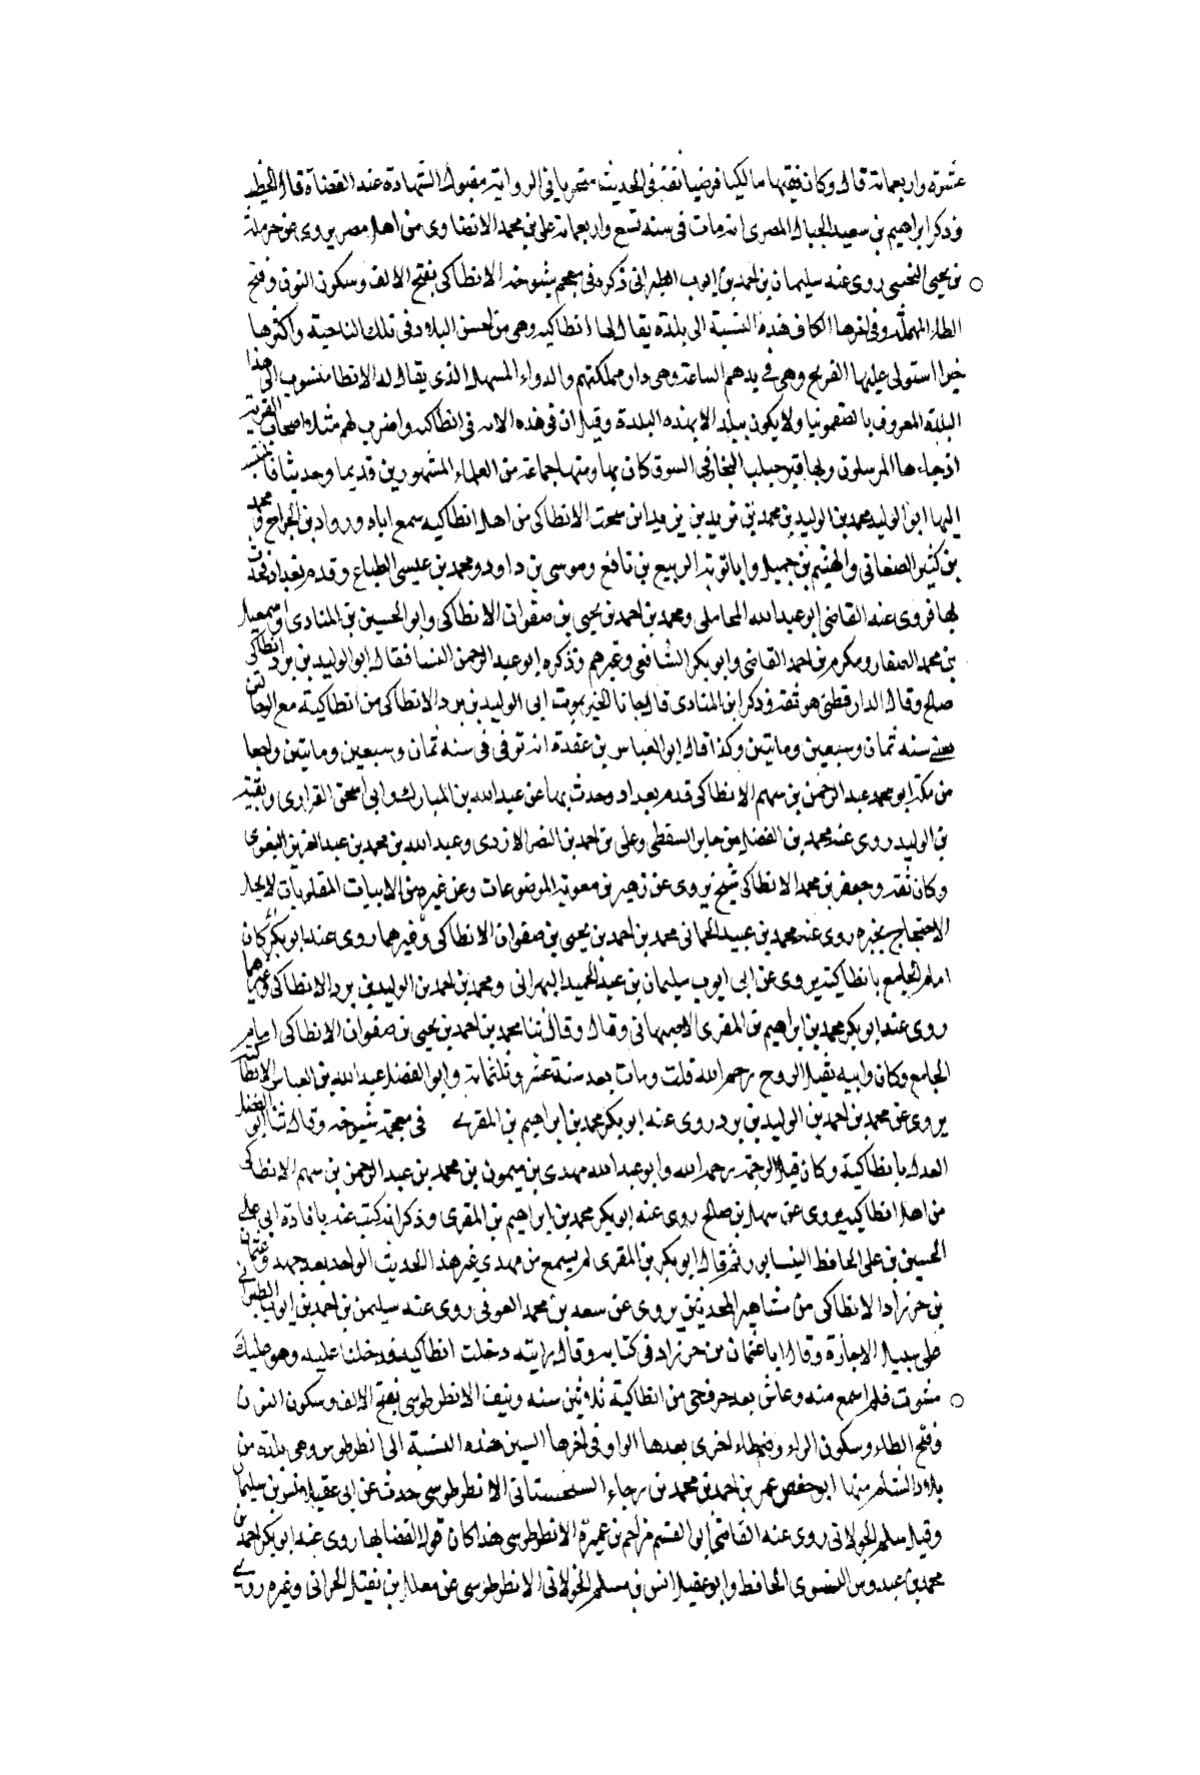 عشرة واربعمائة قال وكان فقيها مالكيا فرضيا ثقة فى الحديث متحريا فى الرواية مقبول الشهادة عند القضاة قال الخطيب
وذكر ابراهيم بن سعيد الحبال المصرى انه مات فى سنة تسع واربعمائة على بن محمد الانضاوى من اهل مصر يروى عن حرملة
بن يحيى التجيبى روى عنه سليمان بن احمد بن ايوب الطبرانى ذكره فى معجم شيوخه الانطاكى بفتح الالف وسكون النون وفتح
الطاء المهملة وفى اخرها الكاف هذه النسبة الى بلدة يقال لها انطاكية وهى من احسن البلاد فى تلك الناحية واكثرها
خيرا استولى عليها الفرنج وهى فى يدهم الساعة وهى دار مملكتهم والدواء المسهل الذى يقال له الانطا منسوب الى هذا
البلدة المعروف بالسقمونيا ولا يكون ببلد الا بهذه البلدة وقيل ان فى هذه الاية فى انطاكية واضرب لهم مثلا اصحاب القرية
اذ جاءها المرسلون وبها قبر حبيب النجار فى السوق كان بها ومنها جماعة من العلماء المشهورين قديما وحديثا فانتسب
اليها ابو الوليد محمد بن الوليد بن محمد بن بريد بن يزيد ابن سحت الانطاكى من اهل انطاكية سمع اباه ورواد بن الجراح ومحمد
بن كثير الصنعانى والهيثم بن جميل وابا توبة الربيع بن نافع وموسى بن داود ومحمد بن عيسى الطباع وقدم بغداد فحدث
بها فروى عنه القاضى ابو عبد الله المحاملى ومحمد بن احمد بن يحيى بن صفوان الانطاكى وابو الحسين بن المنادى واسمعيل
بن محمد الصفار ومكرم بن احمد القاضى وابو بكر الشافعى وغيرهم وذكره ابو عبد الرحمن النسا فقال ابو الوليد بن برد انطاكى
صالح وقال الدارقطنى هو ثقة وذكر ابن المنادى قال جانا الخبر بموت ابى الوليد بن برد الانطاكى من انطاكية مع
يعنى سنة ثمان وسبعين ومايتين وكذا قال ابو العباس بن عقدة انه توفى فى سنة ثمان وسبعين ومايتين راجعا
من مكة ابو محمد عبد الرحمن بن سهم الانطاكى قدم بغداد وحدث بها عن عبد الله بن المبارك وابى اسحق الفزارى وبقية
بن الوليد روى عنه محمد بن الفضل بن جابر السقطى وعلى بن احمد بن النضر الازدى وعبد الله بن محمد بن عبد العزيز البغوى
وكان ثقة وجعفر بن محمد الانطاكى شيخ يروى عن زهير بن معوية الموضوعات وعن غيره من الاثبات المقلوبات لا يحل
الاحتجاج بخبره روى عنه محمد بن عبيد الحمانى محمد بن احمد بن يحيى بن صفوان الانطاكى وغيرهما روى عنه ابو بكر كان
امام الجامع بانطاكية يروى عن ابى ايوب سليمان بن عبد الحميد البهرانى ومحمد بن احمد بن الوليد بن برد الانطاكى وغيرهما
روى عنه ابو بكر محمد بن ابراهيم بن المقرى الاصبهانى وقال وقال ثنا محمد بن احمد بن يحيى بن صفوان الانطاكى امام
الجامع وكان وابيه ثقيل الروح رحمه الله قلت ومات بعد سنة عشر وثلثمائة وابو الفضل عبد الله بن العباس الانطاكى
يروى عن محمد بن احمد بن الوليد بن برد روى عنه ابو بكر محمد بن ابراهيم بن المقرى فى معجم شيوخه وقال ثنا ابو الفضل
العدل بانطاكية وكان رحمه الله وابو عبد الله مهدى بن ميمون بن محمد بن عبد الرحمن بن سهم الانطاكى
من اهل انطاكية يروى عن سهل بن صالح روى عنه ابو بكر محمد بن ابراهيم بن المقرى وذكر انه كتب عنه بافادة ابى على
الحسين بن على الحافظ النيسابورى ثم قال ابو بكر بن المقرى لم يسمع من مهدى غير هذا الحديث الواحد بعد جهد وعثمان
بن خرزاد الانطاكى من مشاهير المحدثين يروى عن سعد بن محمد العوفى روى عنه سليمن بن احمد بن ايوب الطبرانى
على سبيل الاجازة وقال ابا عثمان بن خرزاد فى كتابه وقال رايته دخلت انطاكية فدخلنا عليه وهو عليل
مسبوت فلم اسمع منه وعاش بعد خروجى من انطاكية ثلاثين سنة ونيف الانطرطوسى بفتح الالف وسكون النون
وفتح الطاء وسكون الراء وضم طاء اخرى بعدها الواو وفى اخرها السين هذه النسبة الى انطرطوس وهى بلدة من
بلاد الشام منها ابو حفص عمر بن احمد بن محمد بن رجاء الانطرطوسى حدث عن ابى عقيل انس بن سليمان
وقيل سلم الخولانى روى عنه القاضى ابو القسم مزاحم بن عميرة الانطرطوسى هذا كان قولا القضا بها روى عنه ابو بكر احمد بن
محمد بن عبدوس النسوى الحافظ وابو عقيل انس بن مسلم الخولانى الانطرطوسى عن معلل بن نفيل الحرانى وغيره روى